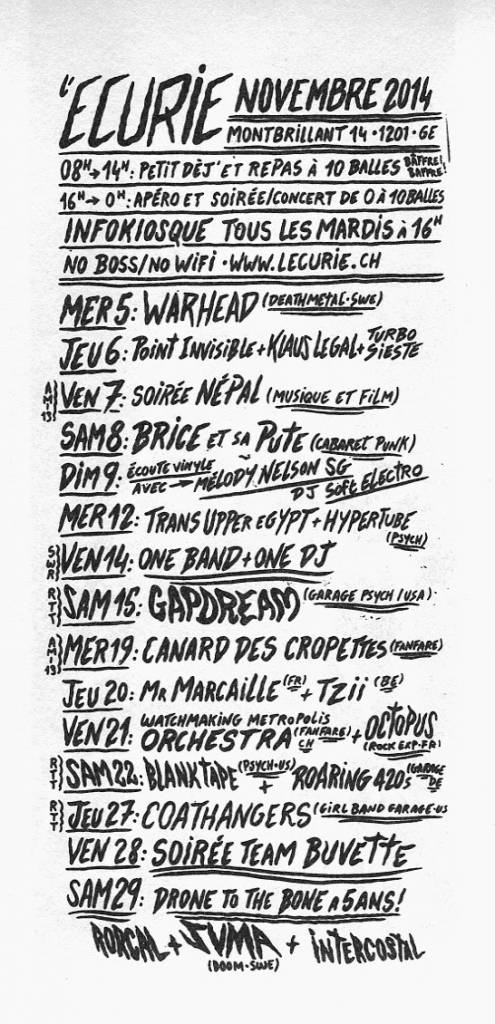 L'ECURIE NOVEMBRE 2014
MONTBRILLANT 14 · 1201 · GE
08H→14H: PETIT DÈJ' ET REPAS À 10 BALLES BÂFFRE! BAFFRE!
16H→ 0H: APÉRO ET SOIRÉE/CONCERT DE 0 À 10 BALLES
INFOKIOSQUE TOUS LES MARDIS à 16H
NO BOSS/NO WIFI · WWW.LECURIE.CH
MER 5: WARHEAD (DEATHMETAL·SWE)
JEU 6: POINT INVISIBLE + KLAUS LEGAL + TURBO SIESTE
AMI-13} VEN 7: SOIRÉE NÉPAL (MUSIQUE ET FILM)
SAM 8: BRICE ET SA PUTE (CABARET PUNK)
DIM 9: ÉCOUTE VINYLE AVEC → MÉLODY NELSON SG
DJ SOFT ELECTRO
MER 12: TRANS UPPER EGYPT + HYPERTUBE
(PSYCH)
SWR} VEN 14: ONE BAND + ONE DJ
RTT} SAM 15: GAPDREAM (GARAGE PSYCH/USA)
AMI-13} MER 19: CANARD DES CROPETTES (FANFARE)
JEU 20: MR MARCAILLE (FR) + TZii (BE)
VEN 21: WATCHMAKING METROPOLIS ORCHESTRA (FANFARE) CH + OCTOPUS (ROCK EXP·FR)
RTT} SAM 22: BLANKTAPE (PSYCH·US) + ROARING 420s (GARAGE DE
RTT} JEU 27: COATHANGERS (GIRL BAND GARAGE·US
VEN 28: SOIRÉE TEAM BUVETTE
SAM 29: DRONE TO THE BONE A 5 ANS!
RORCAL + SUMA + INTERCOSTAL
(DOOM·SWE)